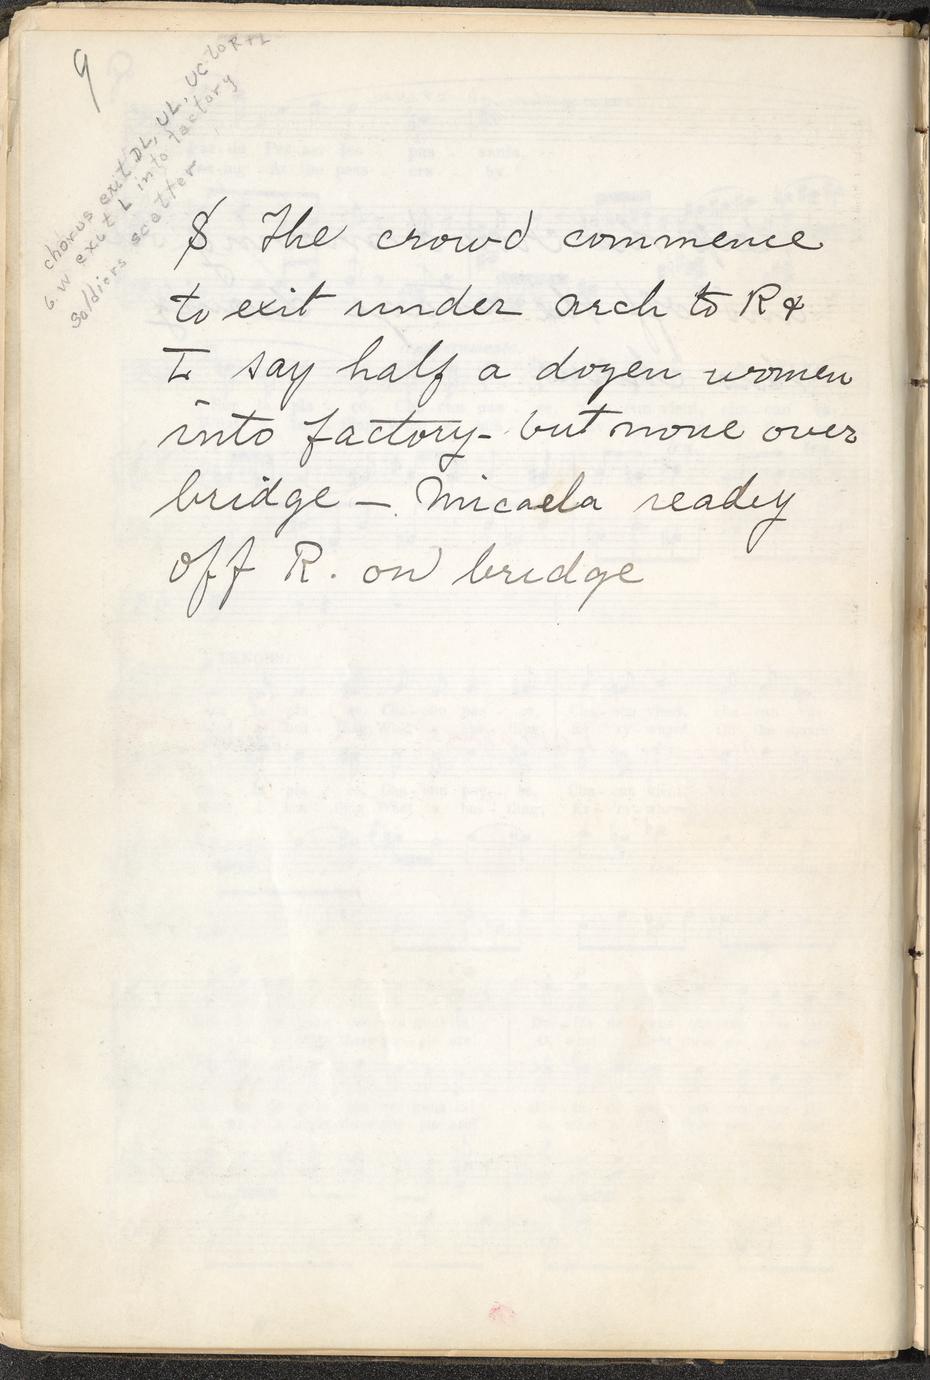 9
chorus exit DL, UL, UC to R+L
6 W exit L into factory
Soldiers scatter
$ The crowd commence
to exit under arch to R &
L say half a dozen women
into factory- but none over
bridge — Micaela ready
off R. on bridge